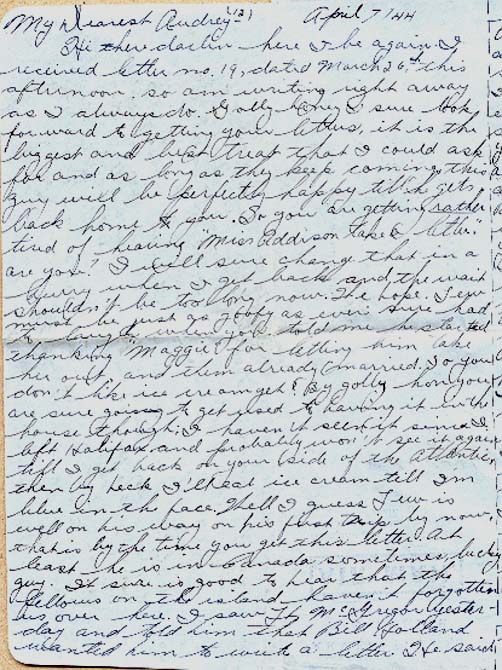 My Dearest Audrey (12) April 7/44
Hi there darlin here I be again. I
received letter no. 19, dated March 26th this
afternoon so am writing right away
as I always do. Golly honey I sure look
forward to getting your letters, it is the
biggest and best treat that I could ask
for and as long as they keep coming this
guy will be perfectly happy till he gets
back home to you. So you are getting rather
tired of hearing "Miss Eddison take a letter."
are you? I will sure change that in a
hurry when I get back and the wait
shouldn't be too long now. We hope. Lew
must be just as goofy as ever sure had
to laugh when you told me he started
thanking Maggie for letting him take
her out and them already married. So you
don't like ice cream yet! By golly hon you
are sure going to get used to having it in the
house though. I haven't seen it since I
left Halifax and probably won't see it again
till I get back on your side of the Atlantic
then by heck I'll eat ice cream till I'm
blue in the face. Well I guess Lew is
well on his way on his first trip by now,
that is by the time you get this letter. At
least he is in Canada sometimes, lucky
guy. It sure is good to hear that the
fellows on the island haven't forgotten
us over here. I saw McGregor yester-
day and told him that Bill Holland
wanted him to write a letter. He said